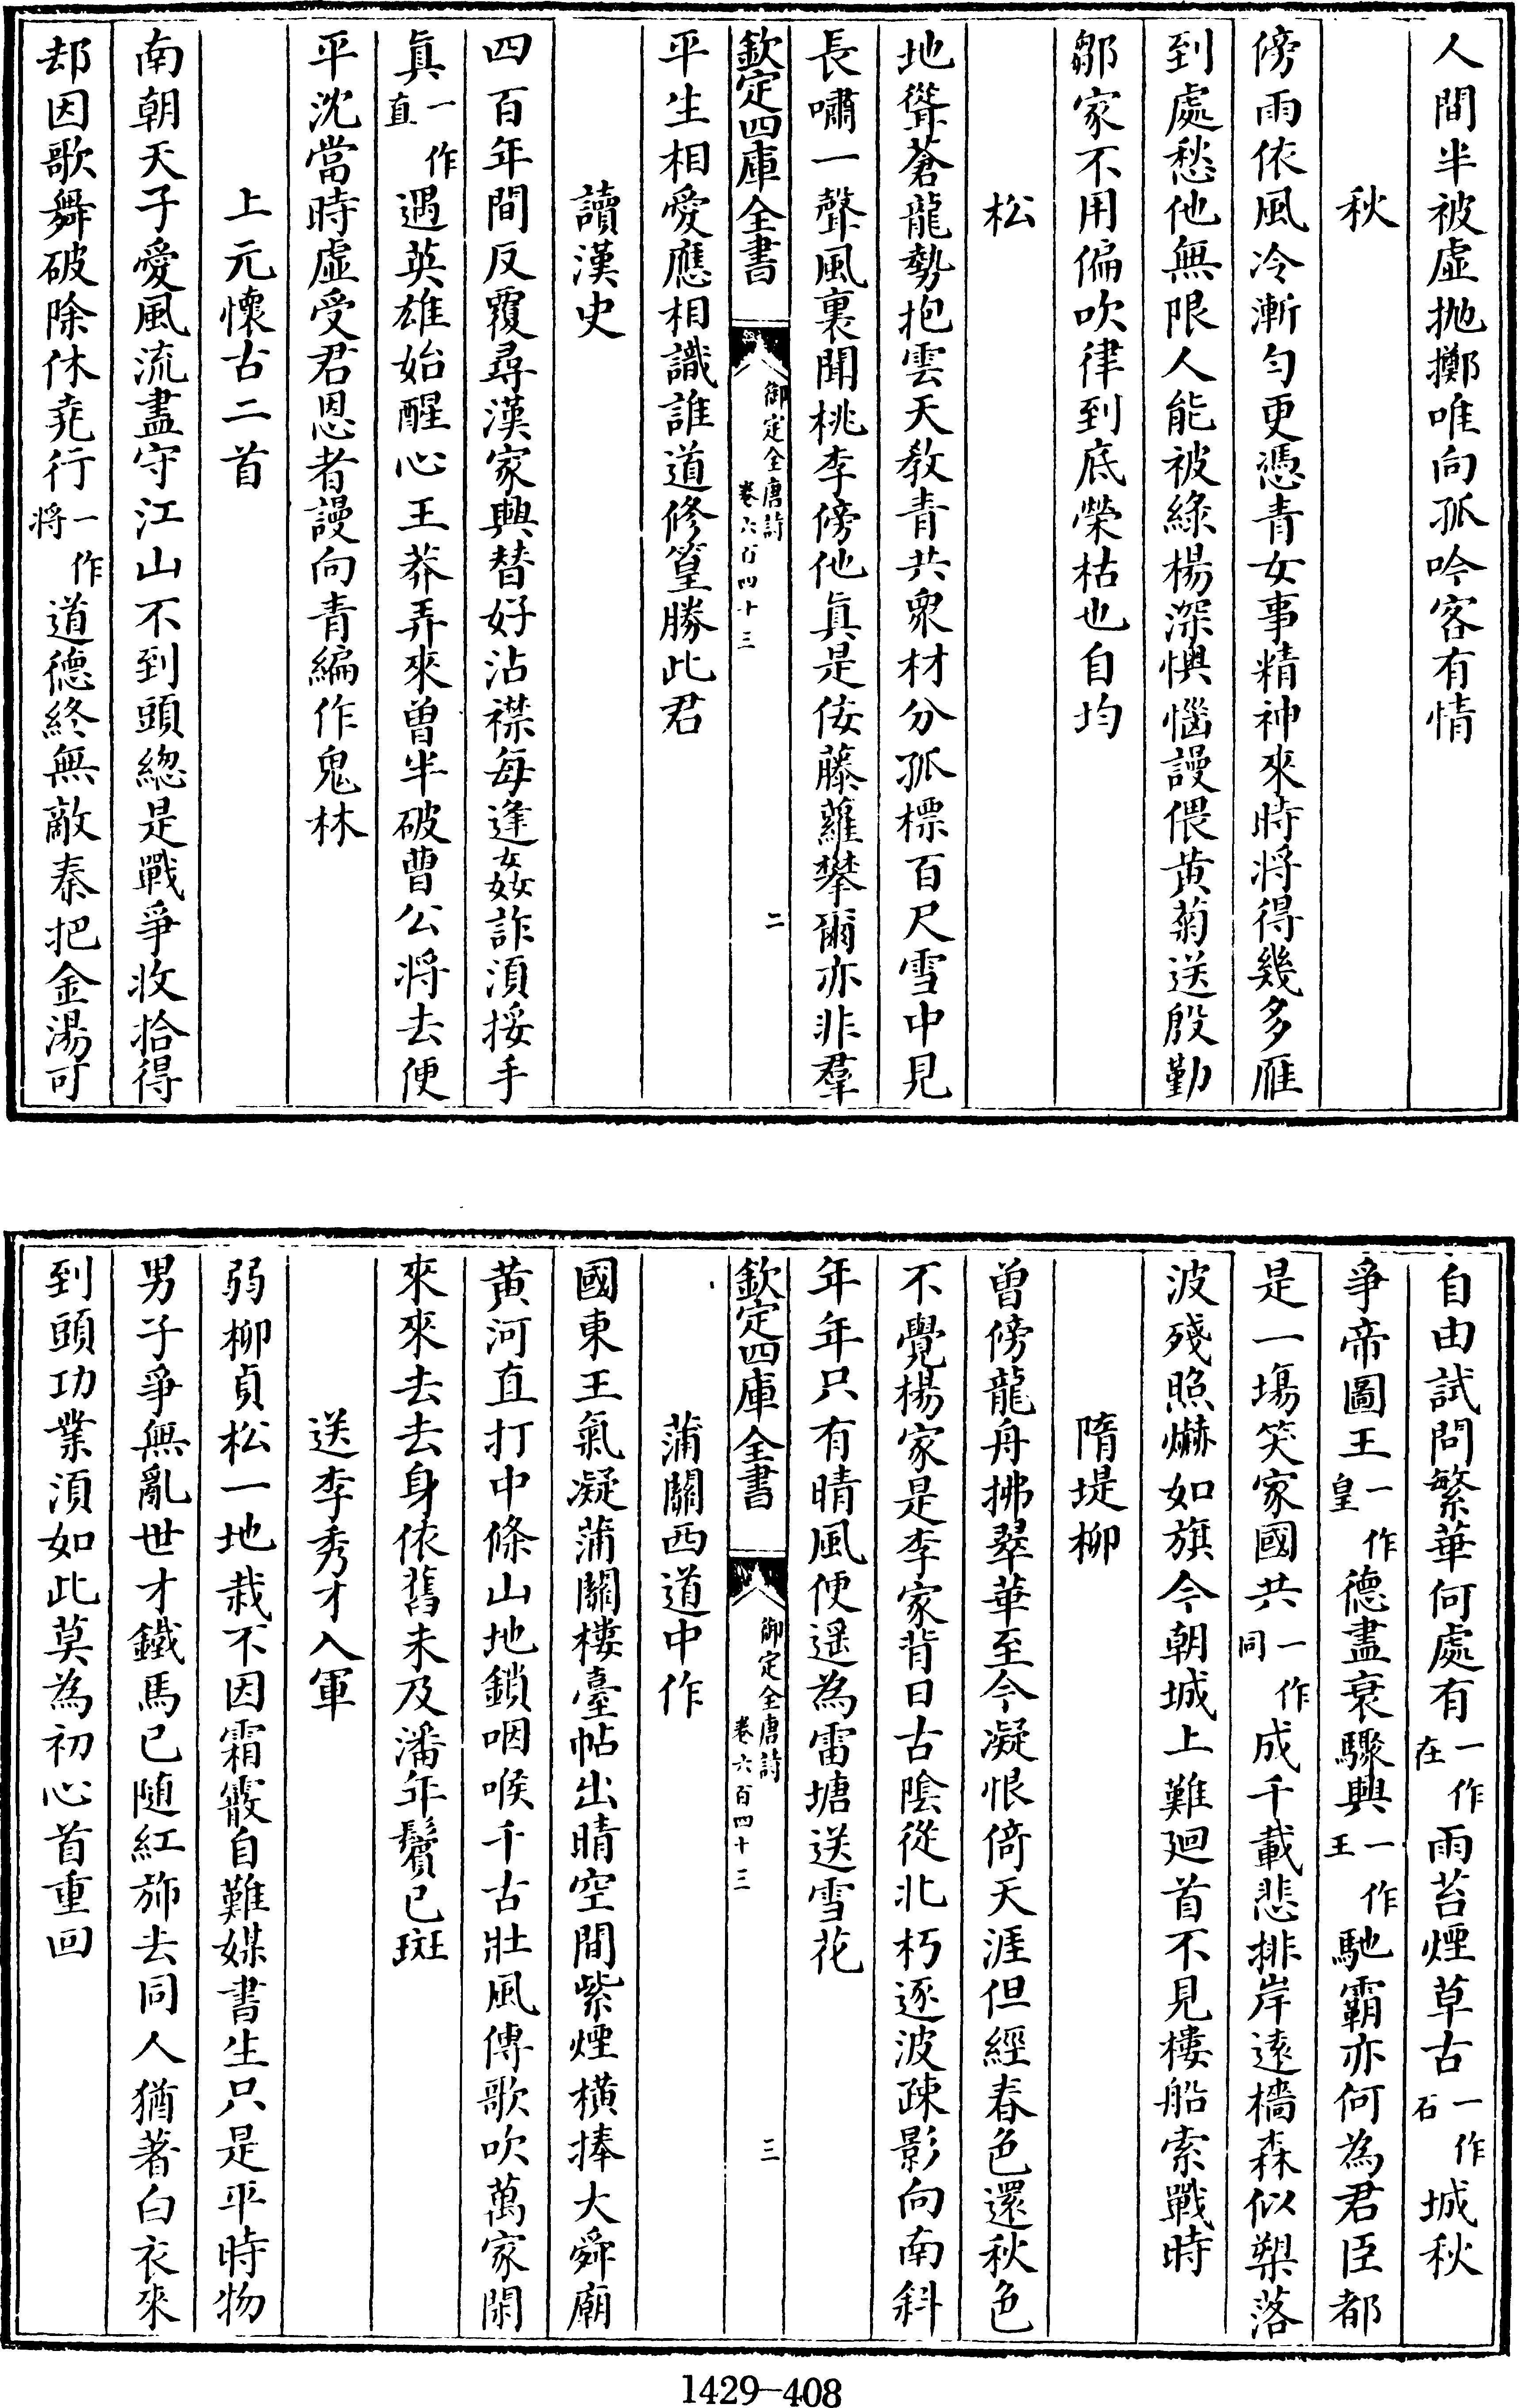 人間半被虛抛擲唯向孤吟客有情
秋
傍雨依風冷漸勻更憑青女事精神來時將得幾多雁
到處愁他無限人能被綠楊深懊惱謾偎黃菊送殷勤
鄒家不用偏吹律到底榮枯也自均
松
地聳蒼龍勢抱雲天教青共衆材分孤標百尺雪中見
長嘯一聲風裏聞桃李傍他真是佞藤蘿攀爾亦非羣
欽定四庫全書 御定全唐詩 卷六百四十三 二
平生相愛應相識誰道修篁勝此君
讀漢史
四百年間反覆尋漢家興替好沾襟每逢姦詐須挼手
真一作直遇英雄始醒心王莽弄來曾半破曹公將去便
平沈當時虛受君恩者謾向青編作鬼林
上元懷古二首
南朝天子愛風流盡守江山不到頭總是戰爭收拾得
却因歌舞破除休堯行一作將道德終無敵秦把金湯可
自由試問繁華何處有一作在雨苔煙草古一作石城秋
爭帝圖王一作皇德盡衰驟興一作王馳霸亦何為君臣都
是一場笑家國共一作同成千載悲排岸遠檣森似槊落
波殘照爀如旗今朝城上難廻首不見樓船索戰時
隋堤柳
曾傍龍舟拂翠華至今凝恨倚天涯但經春色還秋色
不覺楊家是李家背日古陰從北朽逐波疎影向南斜
年年只有晴風便遥為雷塘送雪花
欽定四庫全書 御定全唐詩 卷六百四十三 三
蒲關西道中作
國東王氣凝蒲關樓臺帖出晴空間紫煙橫捧大舜廟
黃河直打中條山地鎖咽喉千古壯風傳歌吹萬家閑
來來去去身依舊未及潘年鬢已斑
送李秀才入軍
弱柳貞松一地栽不因霜霰自難媒書生只是平時物
男子爭無亂世才鐵馬已隨紅斾去同人猶著白衣來
到頭功業須如此莫為初心首重回
1429—408